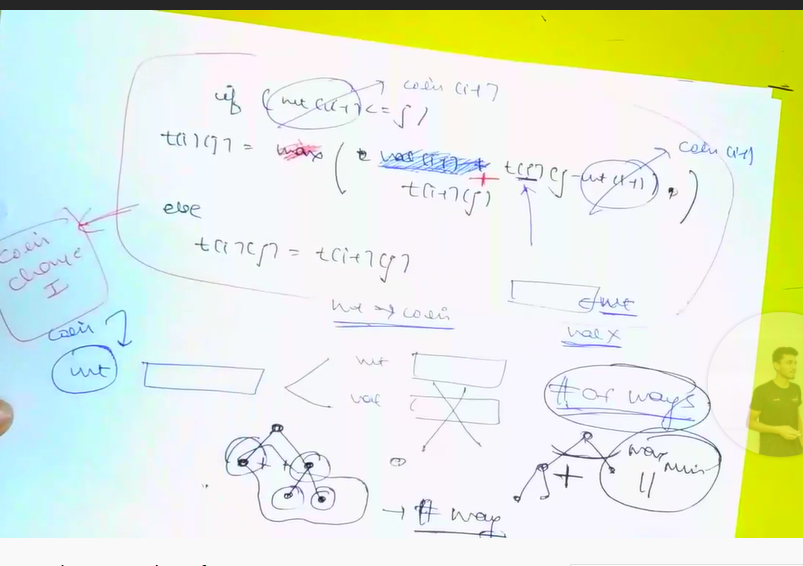 if ( wt [i-1] <= j )
coin [i-1]
t[i][j] = max ( val [i-1] + t[i][j - wt [i-1]] , )
coin [i-1]
+
t[i-1][j]
else
t[i][j] = t[i-1][j]
coin
change
I
wt → coin
wt
val x
coin
wt
wt
val
# of ways
+ +
+
max
min
→ # way